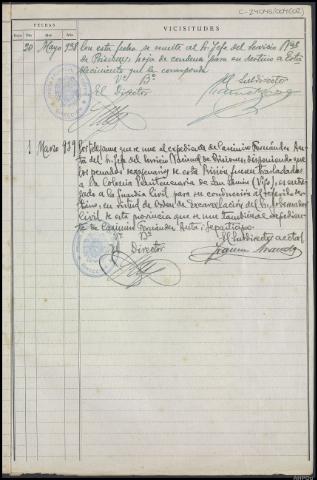 C-24043/004(02)
FECHAS
VICISITUDES
Día
Mes
Año
20 Mayo 938 Con esta fecha se remite al Sr. Jefe del Servicio Nal
de Prisiones hoja de condena para su destino a Esta-
blecimiento que le corresponda
Vº Bº
El Subdirector
El Director
1 Marzo 939 Por telegrama que se une al expediente de Casimiro Fernández An-
ta del Sr. Jefe del Servicio Nacional de Prisiones, disponiendo que
los penados de esta Prisión fuesen trasladados
a la Colonia Penitenciaria de San Simón (Vigo), es entre-
gado a la Guardia Civil para su conducción al referido des-
tino, en virtud de Orden de Excarcelación del Sr. Gobernador
Civil de esta provincia que se une también al expedien-
te de Casimiro Fernández Anta
Vº Bº
El Subdirector acctal
El Director